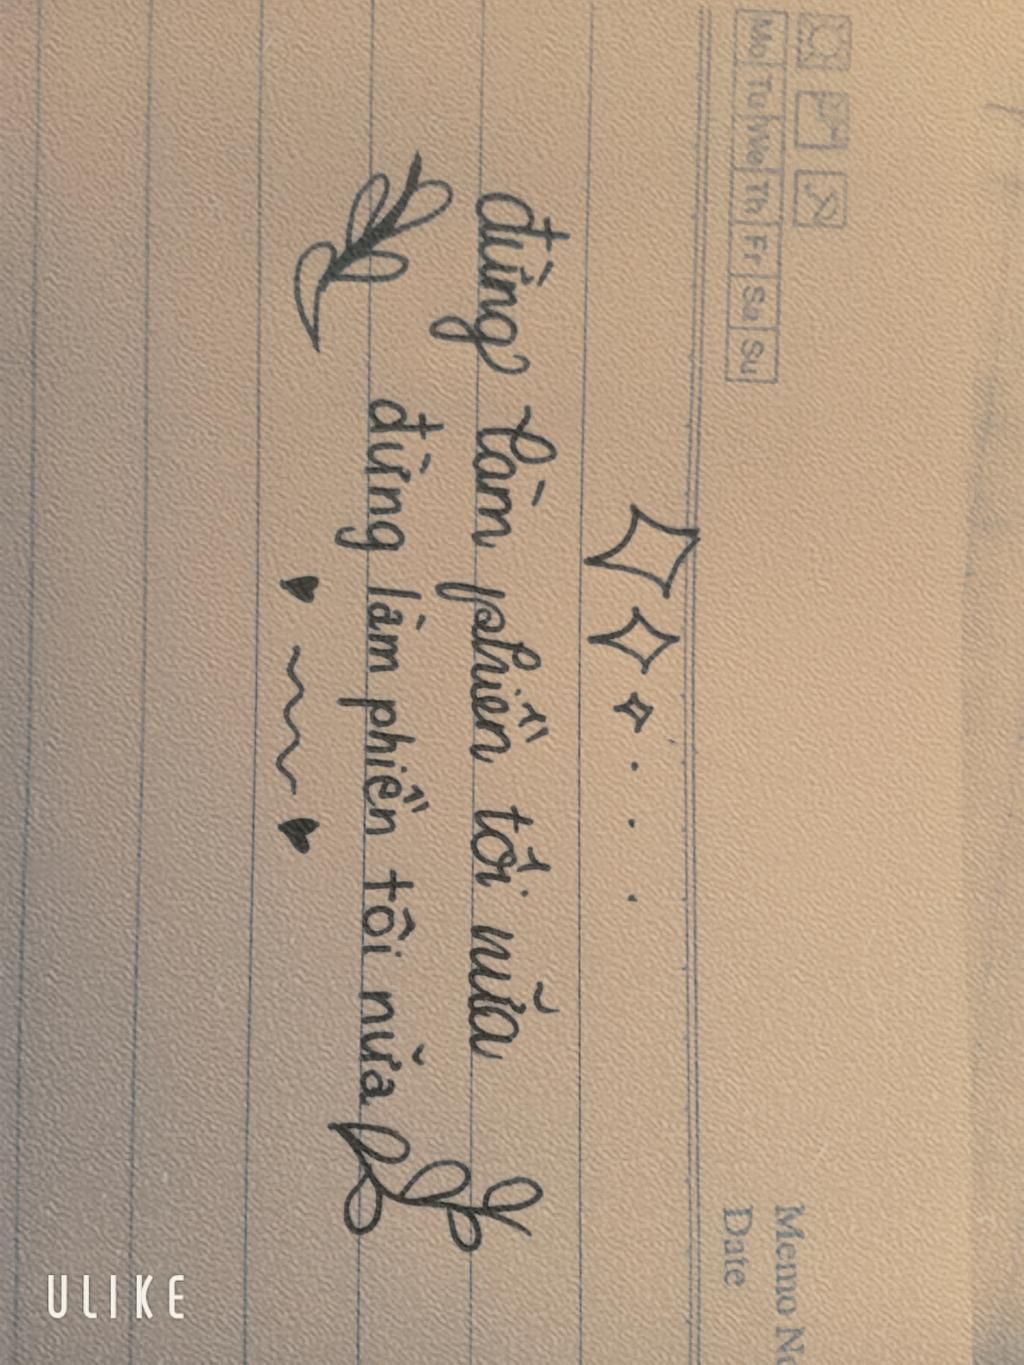 Memo No
Mo Tu We Th Fr Sa Su
Date
đừng làm phiền tôi nữa
đừng làm phiền tôi nữa
ULIKE